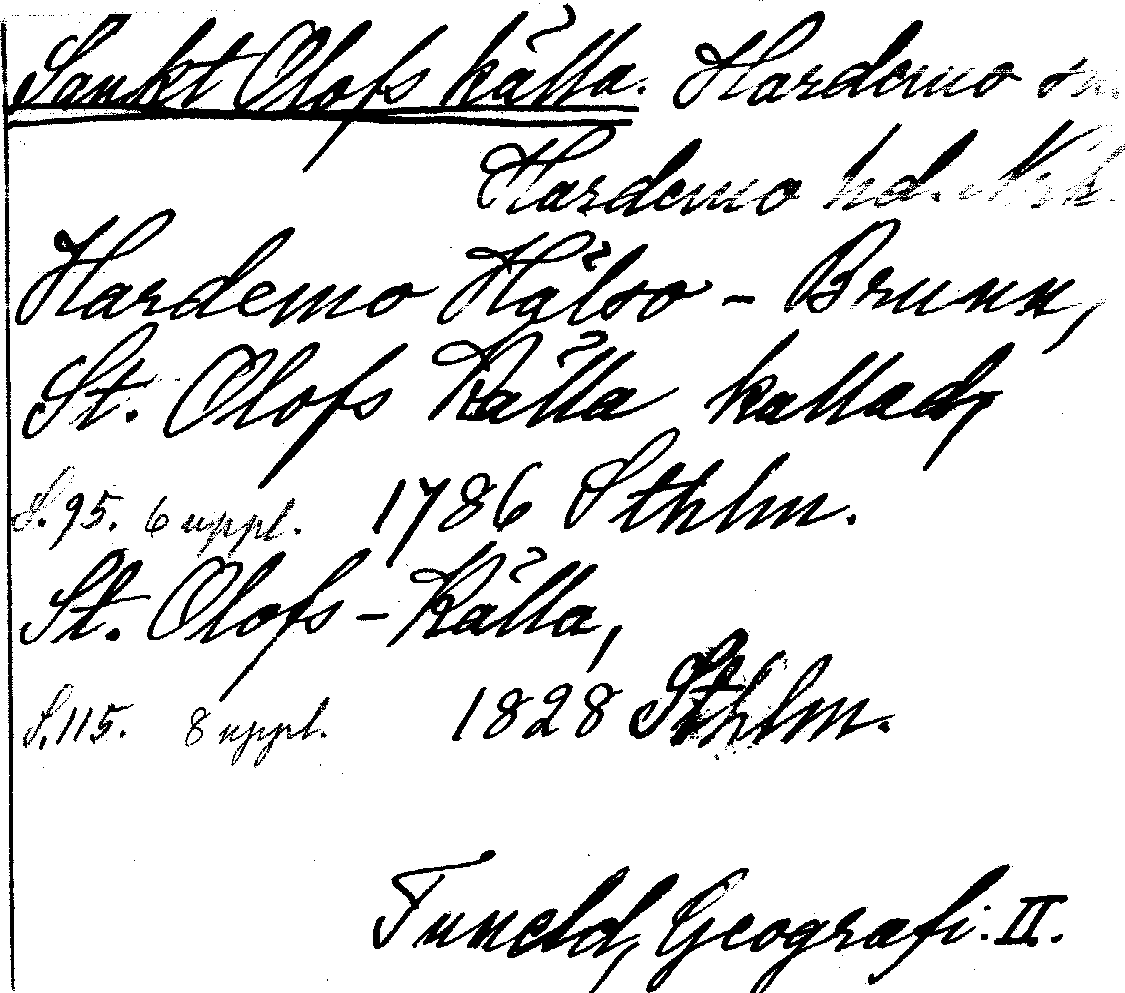 Sankt Olofs källa. Hardemo sn.
Hardemo hd. Nrk.
Hardemo Hälso-Brunn,
St. Olofs Källa kallad,
S. 95. 6 uppl. 1786 Sthlm.
St. Olofs-Källa,
S. 115. 8 uppl. 1828 Sthlm.
Tuneld, Geografi. II.